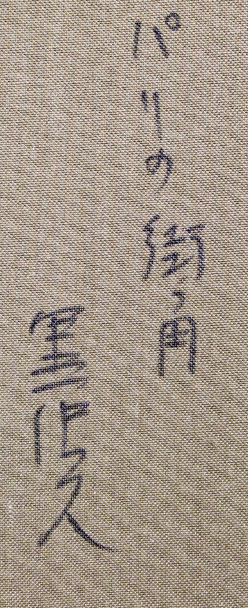 パリの街角
黒 久